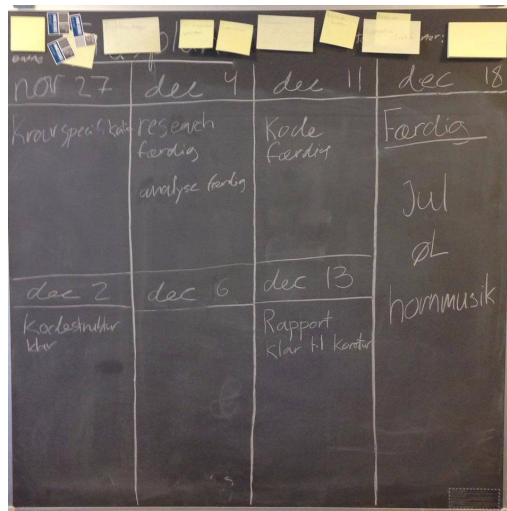 nov 27
Kravspecifikation
dec 2
Kodestruktur
klar
dec 4
research
færdig
analyse færdig
dec 6
dec 11
Kode
færdig
dec 13
Rapport
klar til korrektur
dec 18
Færdig
Jul
ØL
hornmusik